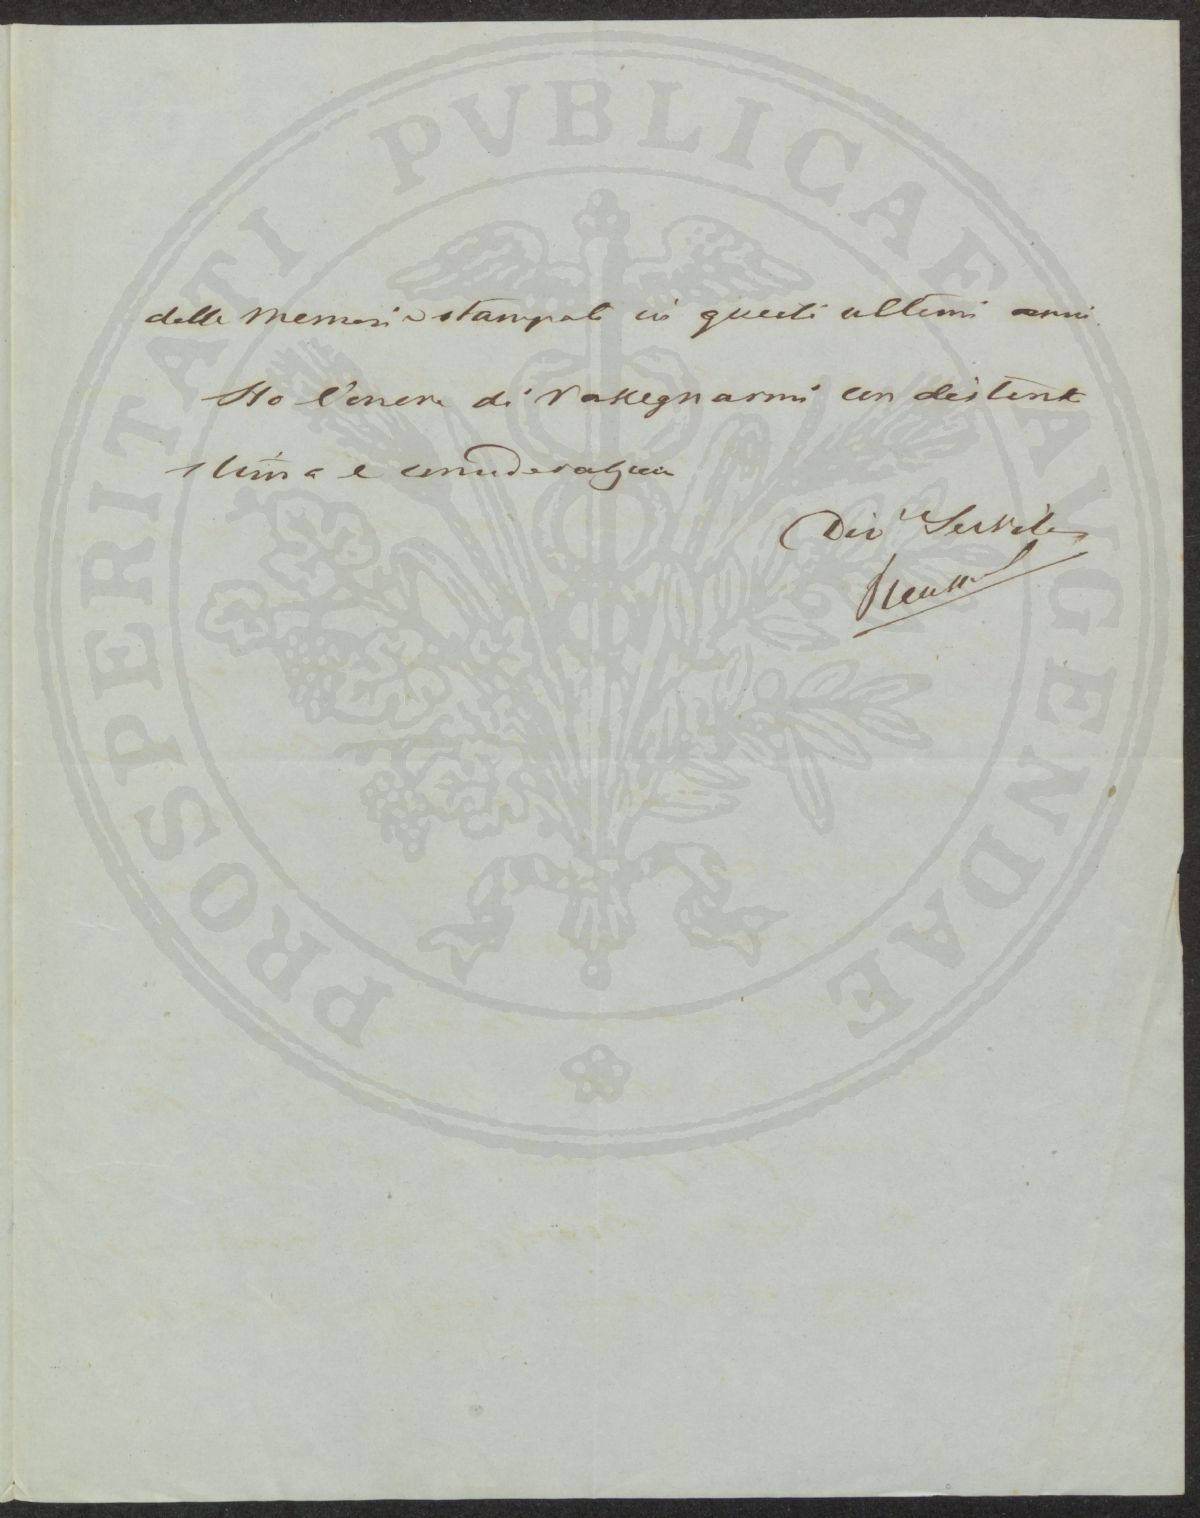 delle memorie stampate in questi ultimi anni.
Ho l'onore di rassegnarmi con distinta
stima e considerazione
Dev.º Servitore
PROSPERITATI PVBLICAE AVGENDAE